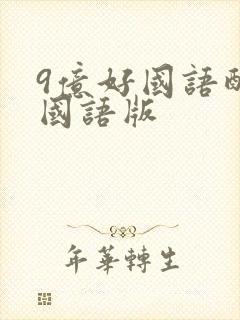 9億好國語配
國語版
年華轉生